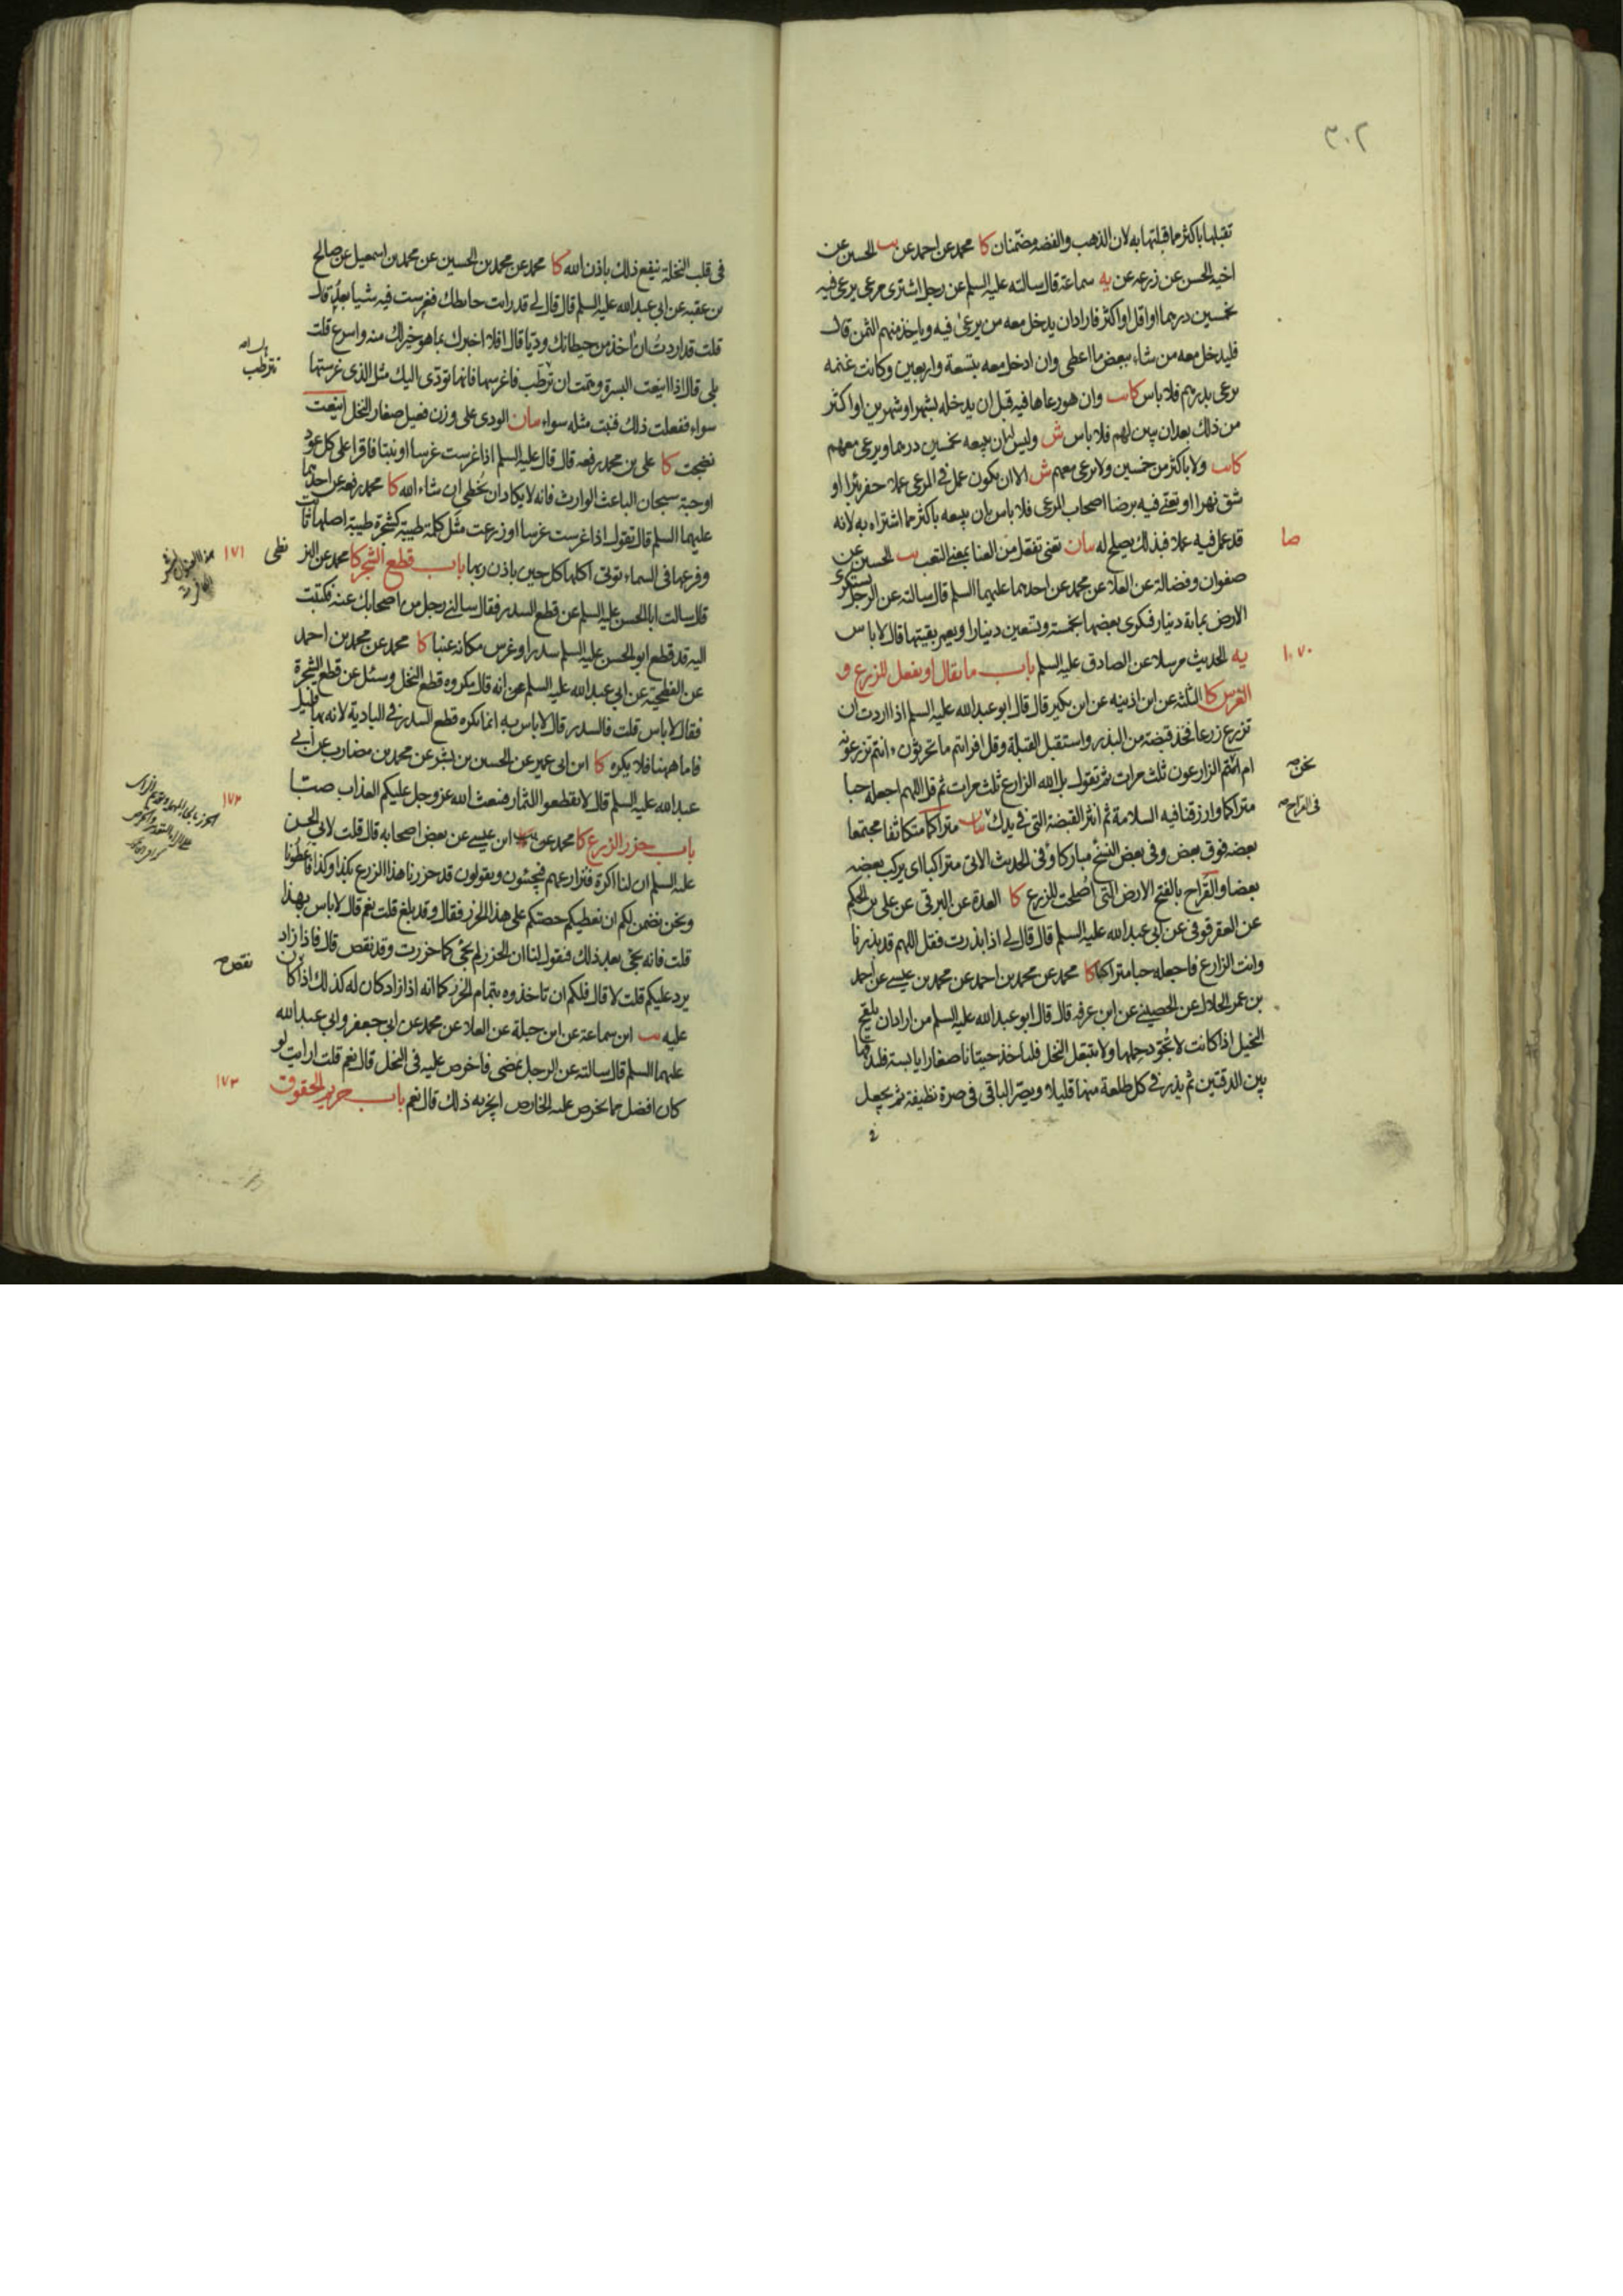 ٣٠٢
تقبلها باكثر مما قبلتها به لان الذهب والفضه مضمنان كا محمد عن احمد عن يب الحسين عن
اخيه الحسن عن زرعه عن يه سماعة قال سالته عليه السلم عن رجل اشترى مرعى يرعى فيه
بخمسين درهما او اقل او اكثر فاراد ان يدخل معه من يرعى فيه وياخذ منهم الثمن قال
فليدخل معه من شاء ببعض ما اعطى وان ادخل معه بتسعة واربعين وكانت غنمه
يرعى بدرهم فلا باس كا يب وان هو رعاها فيه قبل ان يدخله بشهر او شهرين او اكثر
من ذلك بعد ان يبين لهم فلا باس ش وليس له ان يبيعه بخمسين درهما ويرعى معهم
كا يب ولا باكثر من خمسين ولا يرعى معهم ش الا ان يكون عمل في المرعى عملا حفر بئرا او
شق نهرا او تعنى فيه برضا اصحاب المرعى فلا باس بان يبيعه باكثر مما اشتراه به لانه
قد عمل فيه عملا فبذلك يصلح له بيان تعنى تفعل من العنا بمعنى التعب يب الحسين عن
صا
صفوان وفضالة عن العلا عن محمد عن احدهما عليهما السلم قال سالته عن الرجل يستكري
الارض بماية دينار فيكرى بعضها بخمسة وتسعين دينارا ويعمر بقيتها قال لا باس
يه الحديث مرسلا عن الصادق عليه السلم باب ما يقال او يفعل للزرع و
١٠٧٠
الغرس كا الثلثه عن ابن اذينه عن ابن بكير قال قال ابو عبد الله عليه السلم اذا اردت ان
تزرع زرعا فخذ قبضة من البذر واستقبل القبلة وقل افرايتم ما تحرثون ءانتم تزرعونه
ام نحن الزارعون ثلث مرات ثم تقول بل الله الزارع ثلث مرات ثم قل اللهم اجعله حبا
نحن صح
متراكما وارزقنا فيه السلامة ثم انثر القبضة التي في يدك بيان متراكما متكاثفا مجتمعا
في القراح صح
بعضه فوق بعض وفي بعض النسخ مباركا وفي الحديث الاتي متراكبا اى يركب بعضه
بعضا والقراح بالفتح الارض التي اصلحت للزرع كا العدة عن البرقى عن على بن الحكم
عن العقرقوفى عن ابي عبد الله عليه السلم قال قال لى اذا بذرت فقل اللهم قد بذرنا
وانت الزارع فاجعله حبا متراكبا كا محمد عن محمد بن احمد عن محمد بن عيسى عن احمد
بن عمر الجلاب عن الحضينى عن ابن عرفه قال قال ابو عبد الله عليه السلم من اراد ان يلقح
النخيل اذا كانت لا يجود حملها ولا يتبعل النخل فلياخذ حيتانا صغارا يابسة فليدقها
بين الدقتين ثم يذر في كل طلعة منها قليلا ويصر الباقى فى صرة نظيفة ثم يجعل
في
في قلب النخلة ينفع ذلك باذن الله كا محمد عن محمد بن الحسين عن محمد بن اسمعيل عن صالح
بن عقبه عن ابي عبد الله عليه السلم قال قال لى قد رايت حايطك فغرست فيه شيا بعد قال
قلت قد اردت ان اخذ من حيطانك وديا قال افلا اخبرك بما هو خير لك منه واسرع قلت
بلى قال اذا اينعت البسرة وهمت ان ترطب فاغرسها فانها تودى اليك مثل الذى غرستها
تترطب
سواء ففعلت ذلك فنبت مثله سواء بيان الودى على وزن فعيل صغار النخل اينعت
نضجت كا على بن محمد رفعه قال قال عليه السلم اذا غرست غرسا او نبتا فاقرا على كل عود
او حبة سبحان الباعث الوارث فانه لا يكاد ان يخطى ان شاء الله كا محمد رفعه عن احدهما
عليهما السلم قال تقول اذا غرست غرسا او زرعت مثل كلمة طيبة كشجرة طيبة اصلها ثابت
وفرعها في السماء توتى اكلها كل حين باذن ربها باب قطع الشجر كا محمد عن البز
نطى
١٧١
قال سالت ابا الحسن عليه السلم عن قطع السدر فقال سالنى رجل من اصحابك عنه فكتبت
اليه قد قطع ابو الحسن عليه السلم سدرا وغرس مكانه عنبا كا محمد عن محمد بن احمد
عن الفطحية عن ابي عبد الله عليه السلم عن انه قال مكروه قطع النخل وسئل عن قطع الشجرة
فقال لا باس قلت فالسدر قال لا باس به انما يكره قطع السدر في البادية لانه بها قليل
فاما ههنا فلا يكره كا ابن ابي عمير عن الحسين بن بشر عن محمد بن مضارب عن ابي
عبد الله عليه السلم قال لا تقطعوا الثمار فيبعث الله عز وجل عليكم العذاب صبا
باب حزر الزرع كا محمد عن ابن عيسى عن بعض اصحابه قال قلت لابي الحسن
١٧٢
عليه السلم ان لنا اكرة فنزارعهم فيجيئون ويقولون قد حزرنا هذا الزرع بكذا وكذا فاعطونا
ونحن نضمن لكم ان نعطيكم حصتكم على هذا الحزر فقال وقد بلغ قلت نعم قال لا باس بهذا
قلت فانه يجئ بعد ذلك فيقول لنا ان الحزر لم يجئ كما حزرت وقد نقص قال فاذا زاد
يرد عليكم قلت لا قال فلكم ان تاخذوه بتمام الحزر كما انه اذا زاد كان له كذلك اذا كان
نقص صح
عليه يب ابن سماعة عن ابن جبلة عن العلا عن محمد عن ابي جعفر وابي عبد الله
عليهما السلم قال سالته عن الرجل يمضى فاخرص عليه في النخل قال نعم قلت ارايت لو
كان افضل مما يخرص عليه الخارص ايجزيه ذلك قال نعم باب حريم الحقوق
١٧٣